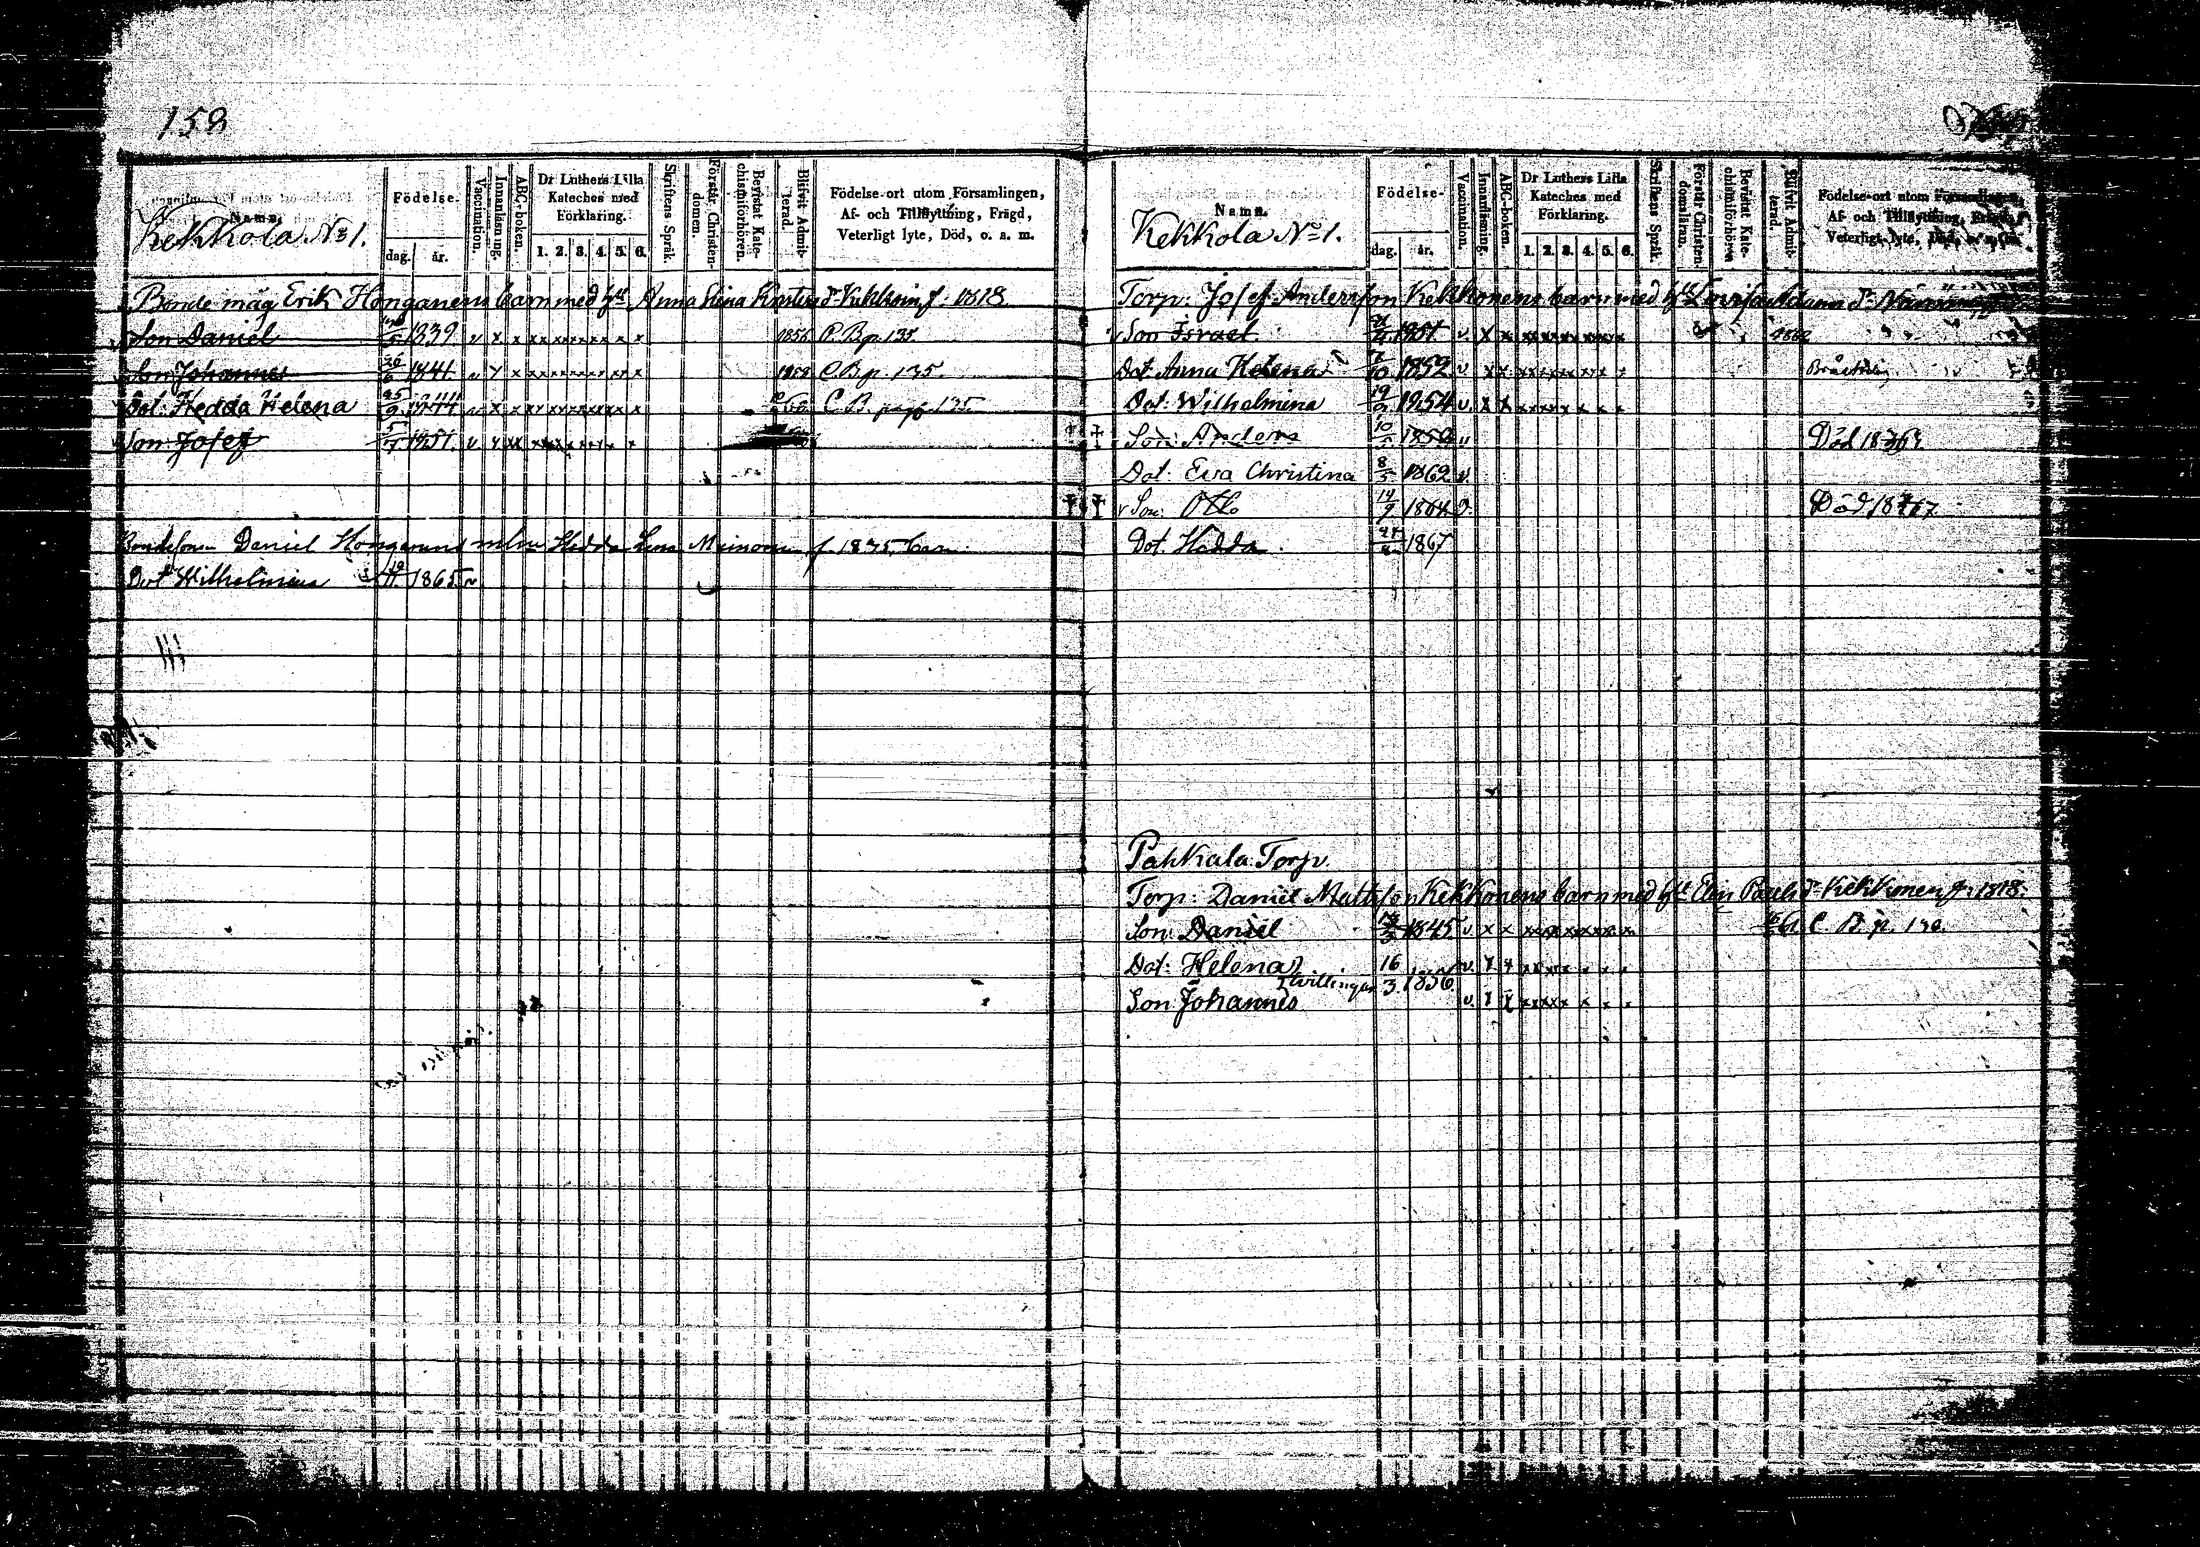 152
Namn.
Födelse.
dag. år.
Vaccination.
Innanläsning.
ABC-boken.
Dr Luthers Lilla Kateches med Förklaring.
1. 2. 3. 4. 5. 6.
Skriftens Språk.
Förstår Christendomen.
Bevistat Katechismiförhören.
Blifvit Admitterad.
Födelse-ort utom Församlingen,
Af- och Tillflyttning, Frägd,
Veterligt lyte, Död, o. a. m.
Kekkola No 1.
Bonde måg Erik Honganens barn med h. Anna Stina f. 1818
Son Daniel 1839 v x x x x x x x x x x 1856 C. B. p. 135.
Son Johannes 26/6 1841. v x x x x x x x x x x 1858 C. B. p. 135.
Dot: Hedda Helena 25/9 1844 v x x x x x x x x x x 66 C. B. pag. 135.
Son Josef 5/7 1851. v x x x x x x x x x x
Bondeson Daniel Hedda Lena f. 1835, barn
Dot Wilhelmina 1865. v
Namn.
Födelse-
dag. år.
Vaccination.
Innanläsning.
ABC-boken.
Dr Luthers Lilla Kateches med Förklaring.
1. 2. 3. 4. 5. 6.
Skriftens Språk.
Förstår Christendomsläran.
Bevistat Katechismiförhören
Blifvit Admitterad.
Födelse-ort utom Församlingen,
Af- och Tillflyttning,
Veterligt lyte, Död,
Kekkola No 1.
Torp: Josef Andersson Kekkonens barn med h. Lovisa Adams Dr
v Son Israel 1851 v. x x x x x x x x x 1862
Dot Anna Helena 7/10 1852 v x x x x x x x x
Dot: Wilhelmina 19/9 1854 v. x x x x x x x x x
‡ Son: Anders 10/5 1859 v Död 1867
Dot: Eva Christina 8/5 1862 v.
‡ ‡ v Son: Otto 14/9 1864 Död 1867.
Dot. Hedda 1867
Pahkala: Torp.
Torp: Daniel Mattsson Kekkonens barn med h. Elin Pauls dr Kekkonen f. 1818.
Son: Daniel 1845 v. x x x x x x x x x x 61 C. B. p. 130.
Dot: Helena 16 v. x x x x x x x x x
Tvillingar 3. 1856.
Son Johannes v. x x x x x x x x x x